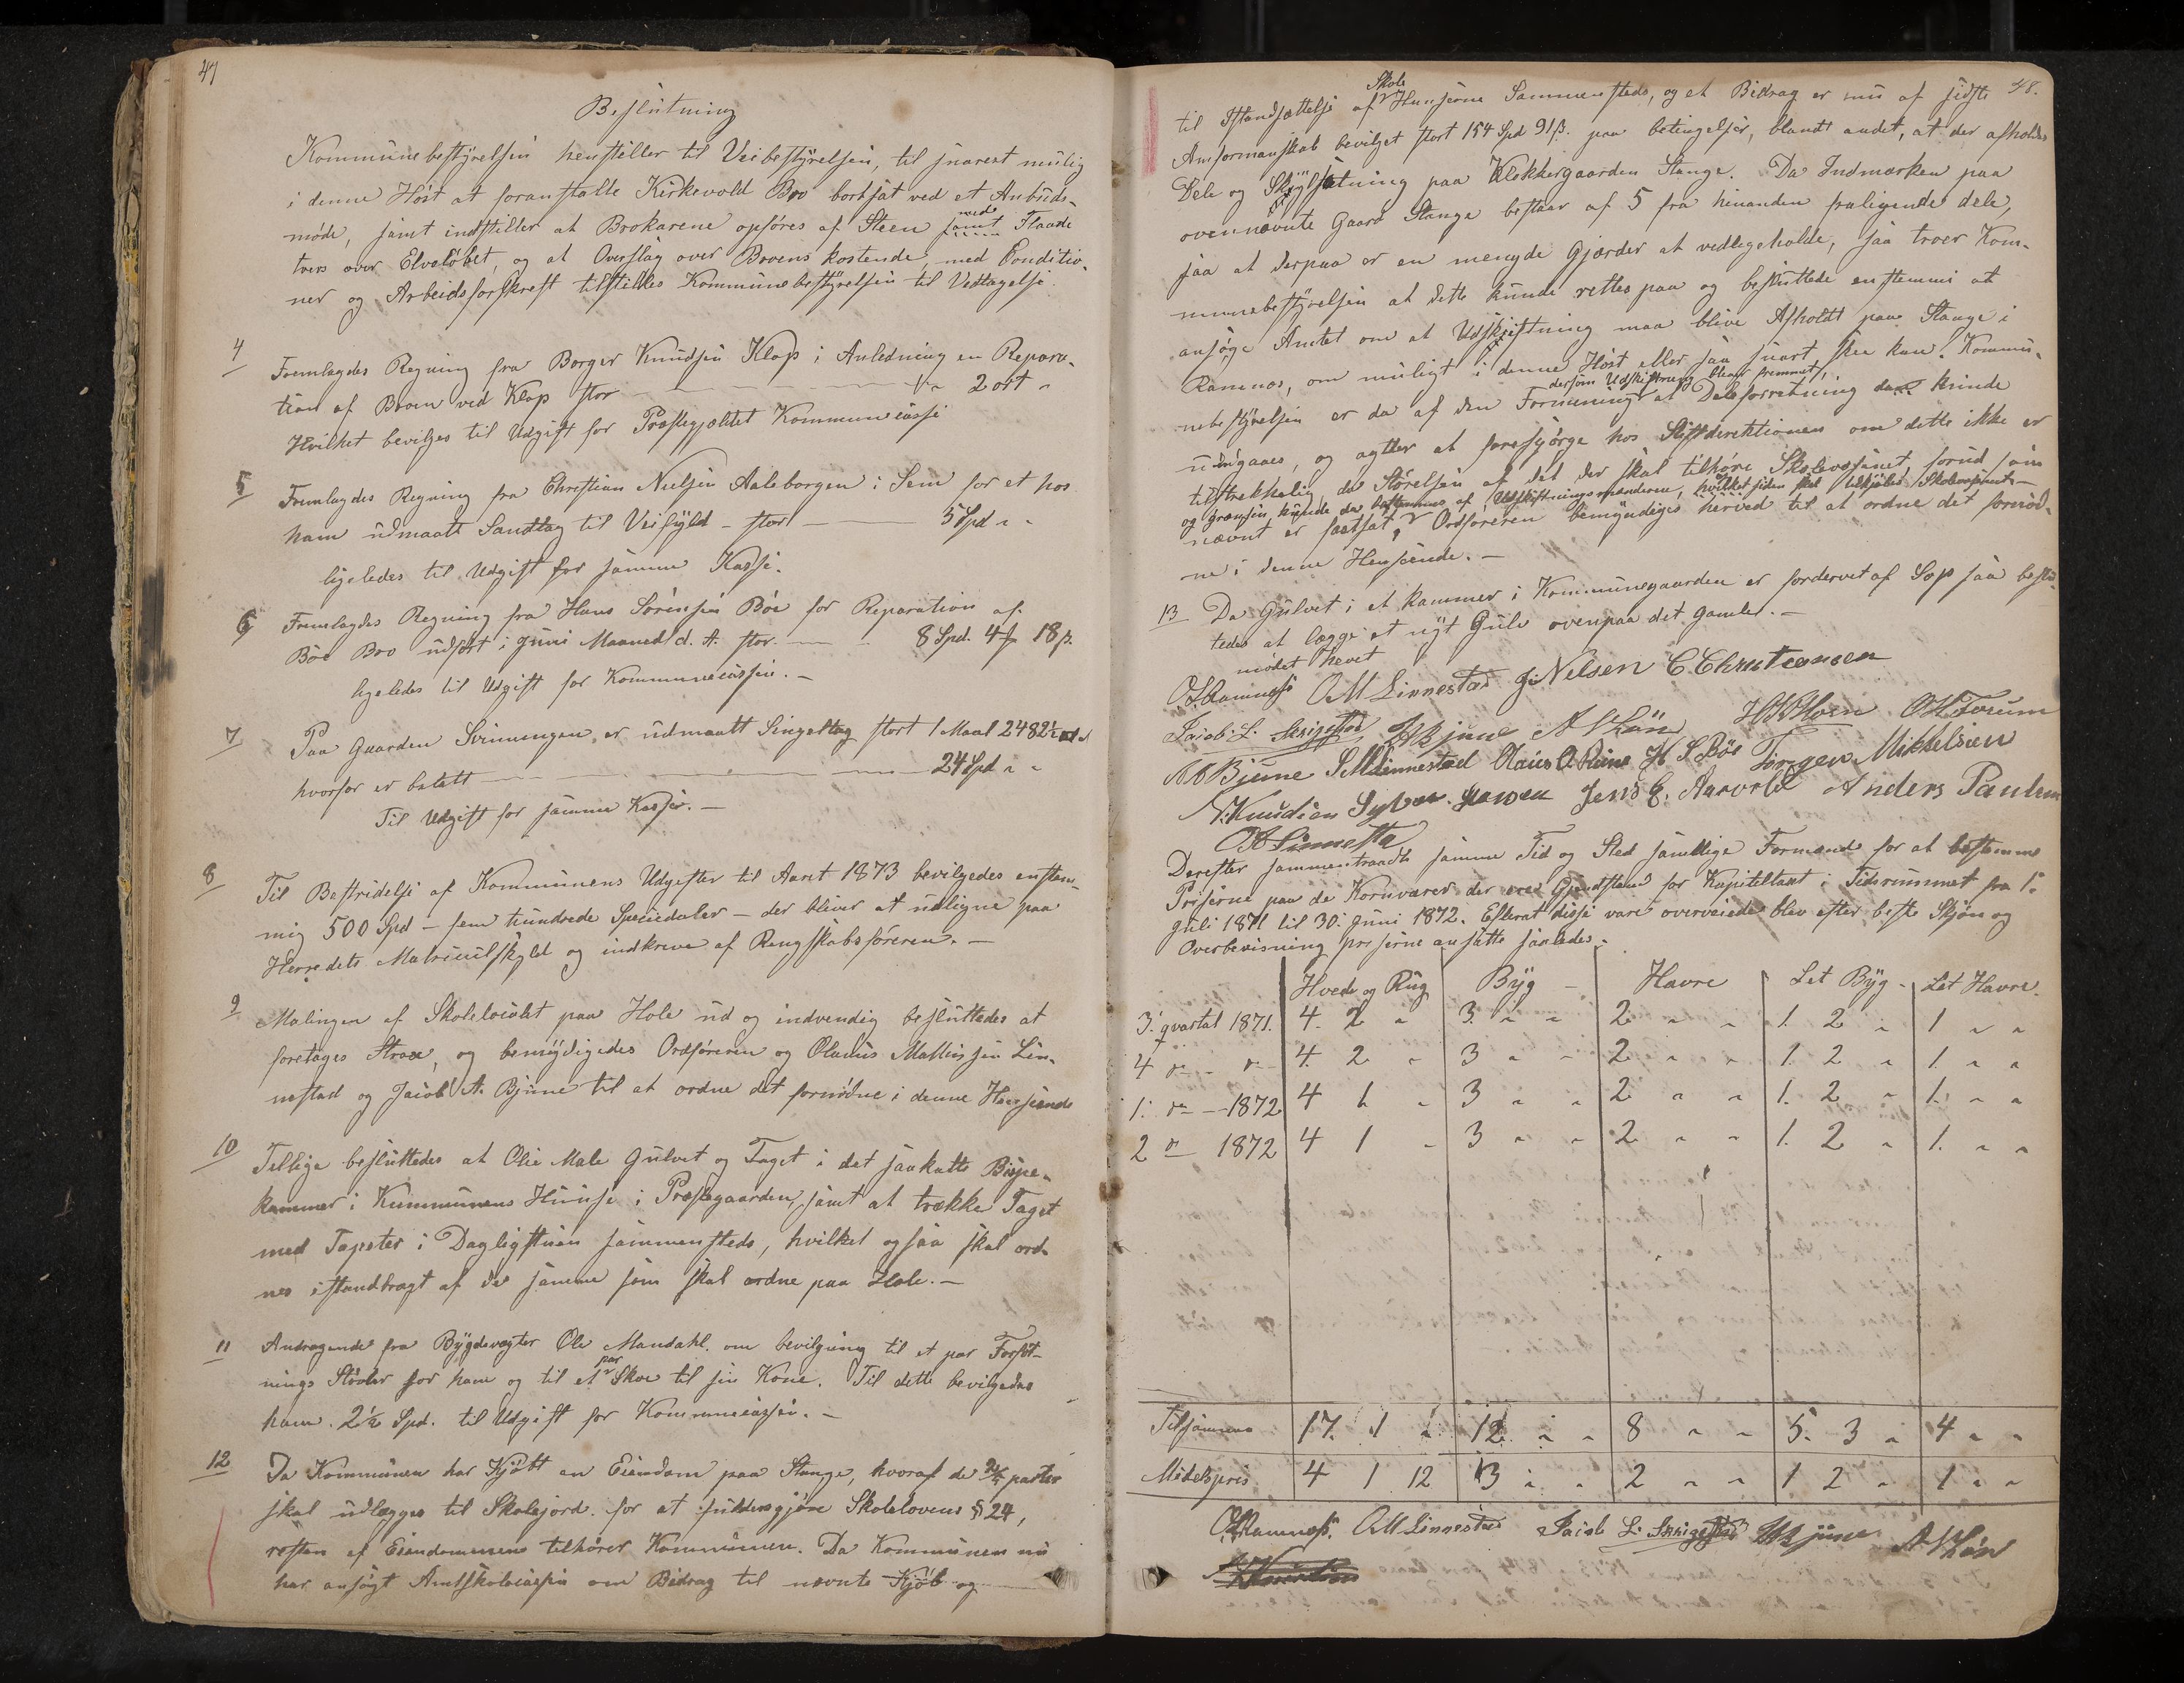 47
Beslutning
Kommunebestÿrelsen henstiller til Veibestÿrelsen, til snarest mulig
i denne Høst at foranstalte Kirkevold Bro bortsat ved et Anbuds-
møde, samt indstiller at Brokarene opføres af Steen med samt
tvers over Elveløbet, og at Overslag over Broens kostende, med Conditio-
ner og Arbeidsforskreft tilstilles Kommunebestÿrelsen til Vedtagelse.
4 Fremlagdes Regning fra Borger Knudsen Klop i Anledning en Repara-
tion af Broen ved Klop stor 2 ort "
Hvilket bevilges til Udgift for Præstegjældet Kommunecasse
5 Fremlagdes Regning fra Christian Nielsen Aaleborgen i Sem for et hos
ham udmaalt Sandtag til Veifÿld - stor 5 Spd " "
ligeledes til Udgift for samme Kasse.
6 Fremlagdes Regning fra Hans Sørensen Bøe for Reparation af
Bøe Bro udført i Juni Maaned d. A. stor 8 Spd. 4 18 β.
ligeledes til Udgift for Kommunecassen. -
7 Paa Gaarden Svinningen er udmaalt Singeltag stort 1 Maal 2482½
hvorfor er betalt 24 Spd " "
Til Udgift for samme Kasse. -
8 Til Bestridelse af Kommunens Udgifter til Aaret 1873 bevilgedes enstem-
mig 500 Spd - fem hundrede Speciedaler - der bliver at udligne paa
Herredets Matriculskÿld og indkreve af Rengskabsføreren. -
9 Malingen af Skolelocalet paa Hole ud og indvendig besluttedes at
foretages Strax, og bemÿdigedes Ordføreren og Olavus Mathisen Lin-
nestad og Jacob A. Bjune til at ordne det fornødne i denne Henseende
10 Tillige besluttedes at Olie Male Gulvet og Taget i det saakalte Bispe-
kammer i Kummunens Huuse i Præstegaarden, samt at trække Taget
med Tapeter i Dagligstuen sammensteds, hvilket ogsaa skal ord-
nes istandbragt af de samme som skal ordne paa Hole. -
11 Andragende fra Bÿgdevægter Ole Mandahl. om bevilgning til et par Forføt-
nings Støvler for ham og til et par Skoe til sin Kone. Til dette bevilgedes
ham. 2½ Spd. til Udgift for Kommunecassen. -
12 Da Kommunen har Kjøbt en Eiendom paa Stange, hvoraf de parter
skal udlægges til Skolejord. for at fuldesgjøre Skolelovens § 24,
resten af Eiendommene tilhører Kommunen. Da Kommunen nu
har ansøgt Amtskolecassen om Bidrag til nævnte Kjøb og
48.
til Istandsættelse af Skole Husene Sammensteds, og et Bidrag er nu af sidste
Amformanskab bevilget stort 154 Spd 91 β. paa betingelser, blandt andet, at der afholdes
Dele og Skÿlsætning paa Klokkergaarden Stange. Da Indmarken paa
ovennævnte Gaard Stange bestaar af 5 fra hinanden fraligende dele,
saa at derpaa er en mengde Gjærder at vedlegeholde, saa troer Kom-
munebestÿrelsen at dette kunde rettes paa og besluttede enstemmi at
ansøge Amtet om at Udskiftning maa blive Afholdt paa Stange i
Ramnes, om muligt i denne Høst eller saa snart skee kan! Kommu-
nebestÿrelsen er da af den Formening dersom Udskiftning blev fremmet, at Deleforretning kunde
undgaaes, og agter at foresjørge hos Stiftdirektionen om dette ikke er
tilstrekkelig, da Størelsen af det der skal tilhøre Skolevæsenet forud som
og grænsen kunde da bestemmes af Udskiftningsmændene, hvilket siden skal tilskjødes Skolevæsenet -
nævnt er fastsat, Ordføreren bemÿndiges herved til at ordne det fornød-
ne i denne Henseende. -
13 Da Gulvet i et kammer i Kommunegaarden er fordervet af Sop saa beslut-
tedes at lægge et nÿt Gulv ovenpaa det gamle. -
mødet hevet
O. Ramnes O M Linnestad J. Nilsen C. Christiansen
Jacob L. Skrigestad A Bjune A N Løn H K Horn O H Forum
A A Bjune S M Linnestad Claus O. Rime H S Bøe Jørgen Mikkelsen
N: Knudsen Sÿver Hansen Jens E. Aarvold Anders Paulsen
O A Linnesta
Derefter sammentraadte samme Tid og Sted samtlige Formænd for at bestemme
Priserne paa de Kornvarer der ere Gjenstand for Kapiteltaxt i Tidsrummet fra 1.
Juli 1871 til 30. Juni 1872. Efterat disse vare overveiede blev efter beste Skjøn og
Overbevisning priserne ansatte saaledes.
Hvede og Rug Bÿg - Havre Let Bÿg - Let Havre.
3. qvartal 1871. 4. 2 " 3. " " 2 " " 1. 2 " 1 " "
4 do - do 4. 2 " 3 " " 2 " " 1. 2 " 1. " "
1. do - 1872 4 1. " 3 " " 2 " " 1. 2 " 1. " "
2 do 1872 4 1 " 3 " " 2 " " 1. 2 " 1. " "
Tilsammens 17. 1 " 12. " " 8 " " 5. 3 " 4 " "
Middelspris 4 1 12 3 " " 2 " " 1 2 " 1 " "
O. Ramnes. O M Linnestad Jacob L: Skrigestad A Bjune A N Løn